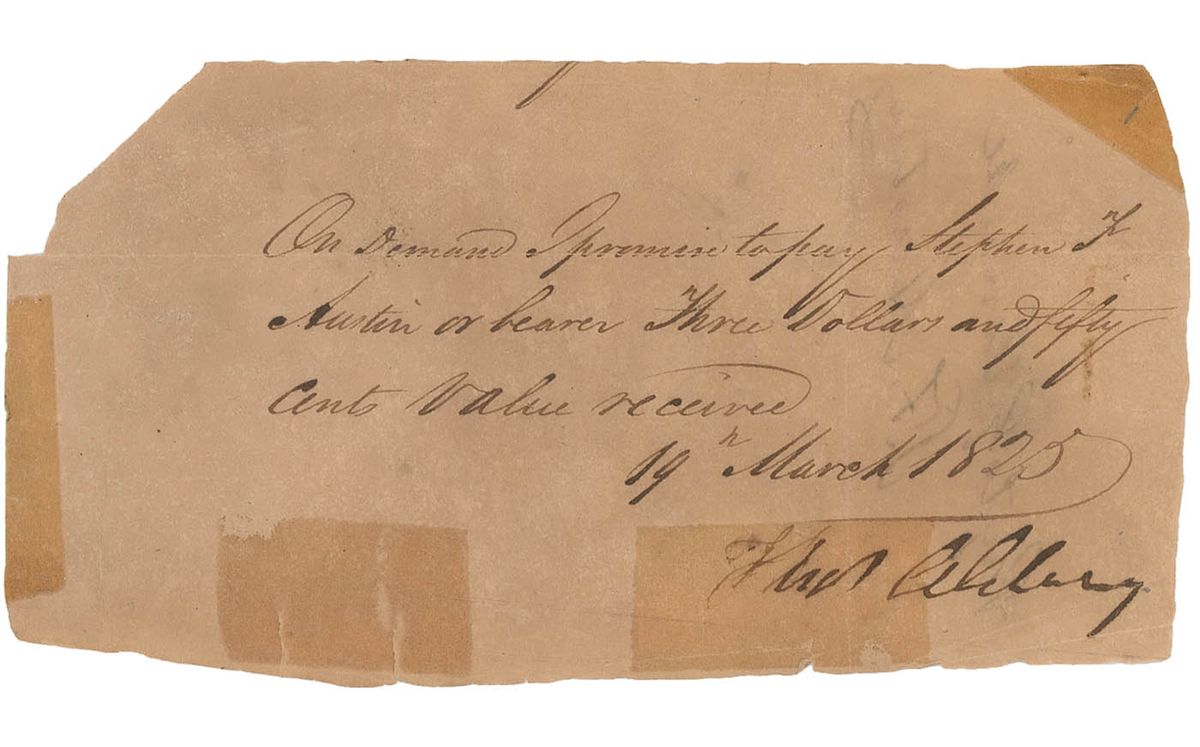 On Demand I promise to pay Stephen F
Austin or bearer Three Dollars and fifty
cents Value received
19th March 1825
Thos